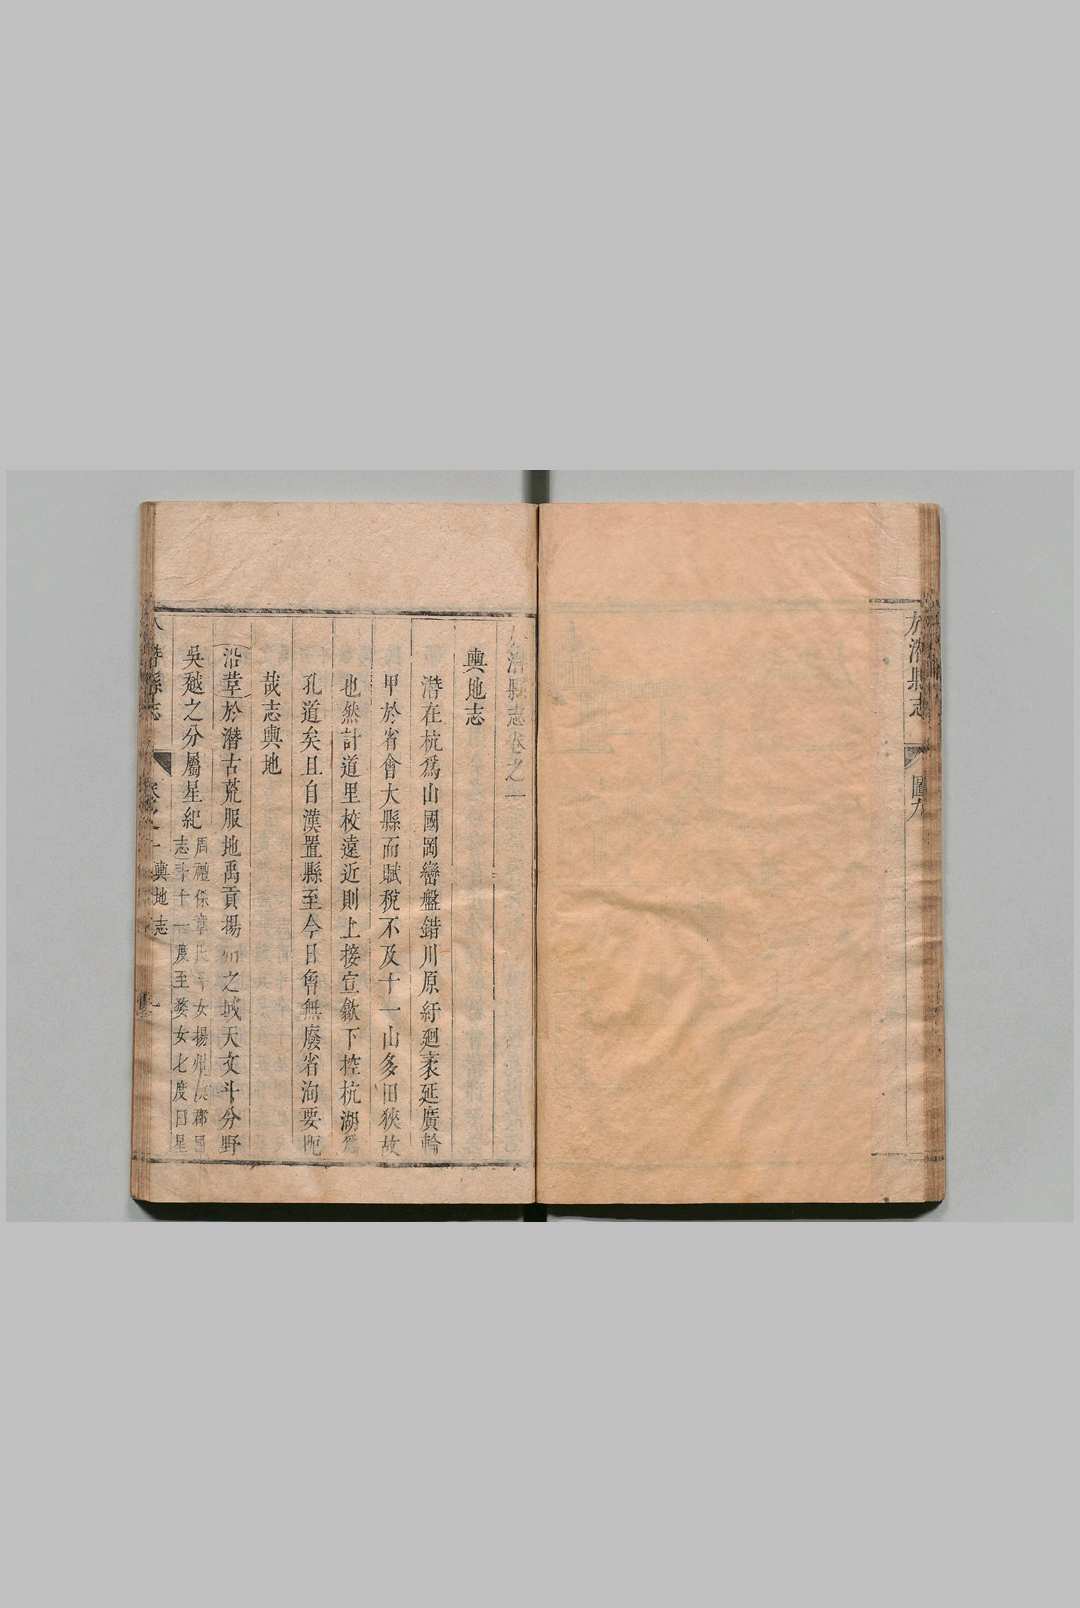 於潛縣志
圖九
潛縣志卷之一
輿地志
潛在杭爲山國岡巒盤錯川原紆廻袤延廣輪
甲於省會大縣而賦稅不及十一山多田狹故
也然計道里校遠近則上接宣歙下控杭湖爲
孔道矣且自漢置縣至今日曾無廢省洵要
哉志輿地
沿革於潛古荒服地禹貢揚州之域天文斗分野
吳越之分屬星紀
周禮保章氏 女揚州
志斗十一度至婺女七度曰星
潛縣志
卷之一
輿地志